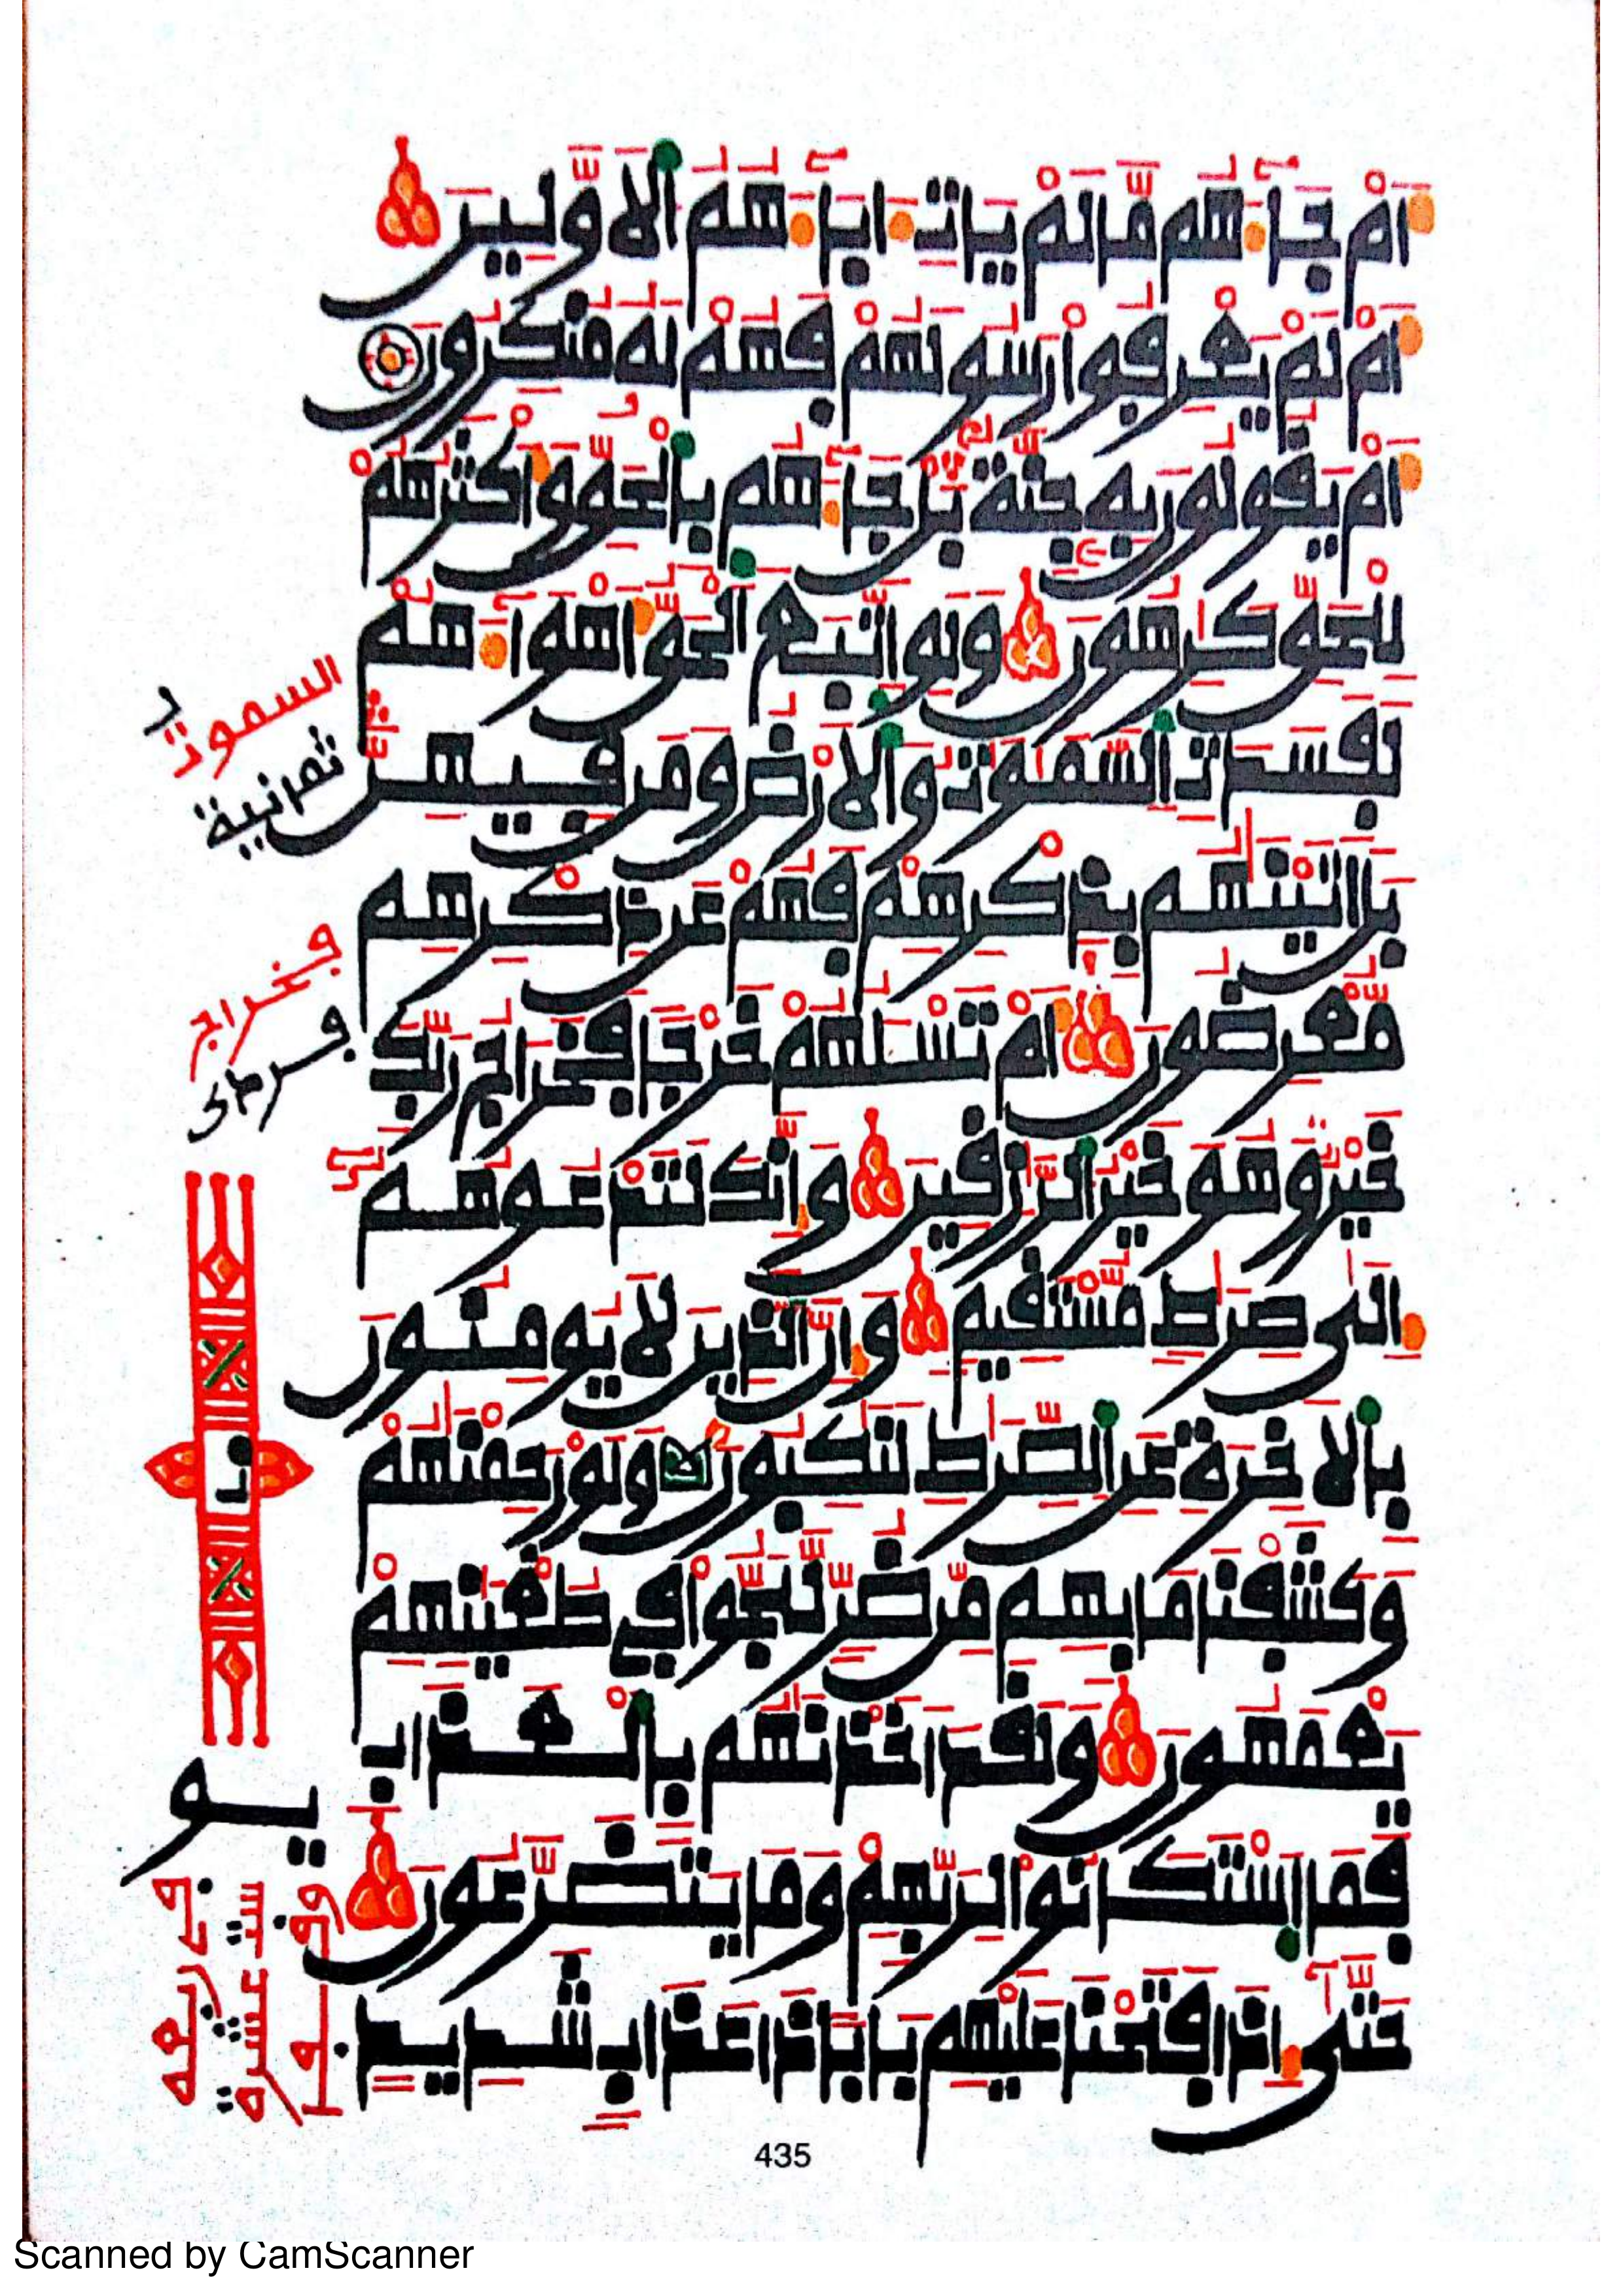 اَمْ جَآءَهُم مَّا لَمْ يَاتِ ءَابَآءَهُمُ اُ۬لَاوَّلِينَ
أَمْ لَمْ يَعْرِفُوا رَسُولَهُمْ فَهُمْ لَهُ مُنكِرُونَ
أَمْ يَقُولُونَ بِهِ جِنَّةٌ بَلْ جَآءَهُم بِالْحَقِّ وَأَكْثَرُهُمْ
لِلْحَقِّ كَرِهُونَ وَلَوِ اتَّبَعَ الْحَقُّ أَهْوَآءَهُمْ
لَفَسَدَتِ السَّمَوَتُ وَالَارْضُ وَمَن فِيهِنَّ
بَلَ اتَيْنَهُم بِذِكْرِهِمْ فَهُمْ عَن ذِكْرِهِم
مُّعْرِضُونَ أَمْ تَسْـَٔلُهُمْ خَرْجًا فَخَرَاجُ رَبِّكَ
خَيْرٌ وَهُوَ خَيْرُ الرَّزِقِينَ وَإِنَّكَ لَتَدْعُوهُمُ
إِلَى صِرَطٍ مُّسْتَقِيمٍ وَإِنَّ الَّذِينَ لَا يُومِنُونَ
بِالَاخِرَةِ عَنِ الصِّرَطِ لَنَكِبُونَ وَلَوْ رَحِمْنَهُمْ
وَكَشَفْنَا مَا بِهِم مِّن ضُرٍّ لَّلَجُّوا فِي طُغْيَنِهِمْ
يَعْمَهُونَ وَلَقَدَ اَخَذْنَهُم بِالْعَذَابِ
فَمَا اسْتَكَانُوا لِرَبِّهِمْ وَمَا يَتَضَرَّعُونَ
حَتَّى إِذَا فَتَحْنَا عَلَيْهِم بَابًا ذَا عَذَابٍ شَدِيدٍ
السموت
ثمنية
فخراج
435
Scanned by CamScanner